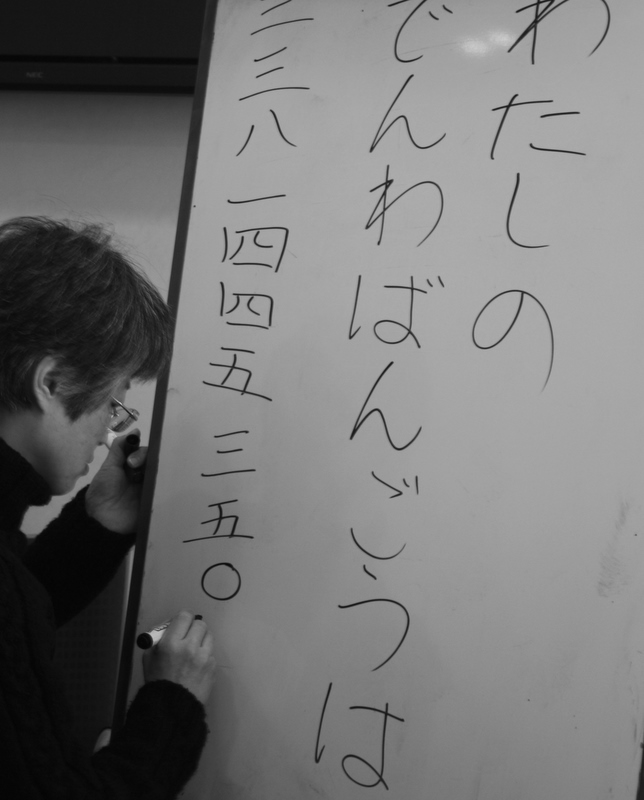 わたしの
でんわばんごうは
三八一四四五三五〇
NEC